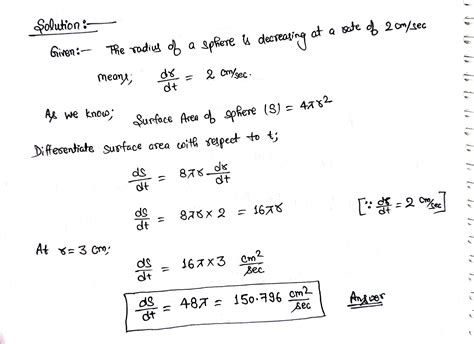 Solution:-
Given:- The radius of a sphere is decreasing at a rate of 2 cm/sec
means, dr/dt = 2 cm/sec.
As we know; Surface Area of sphere (S) = 4πr²
Differentiate surface area with respect to t;
dS/dt = 8πr dr/dt
dS/dt = 8πr × 2 = 16πr [∵ dr/dt = 2 cm/sec]
At r = 3 cm;
dS/dt = 16π×3 cm²/sec
dS/dt = 48π = 150.796 cm²/sec Answer